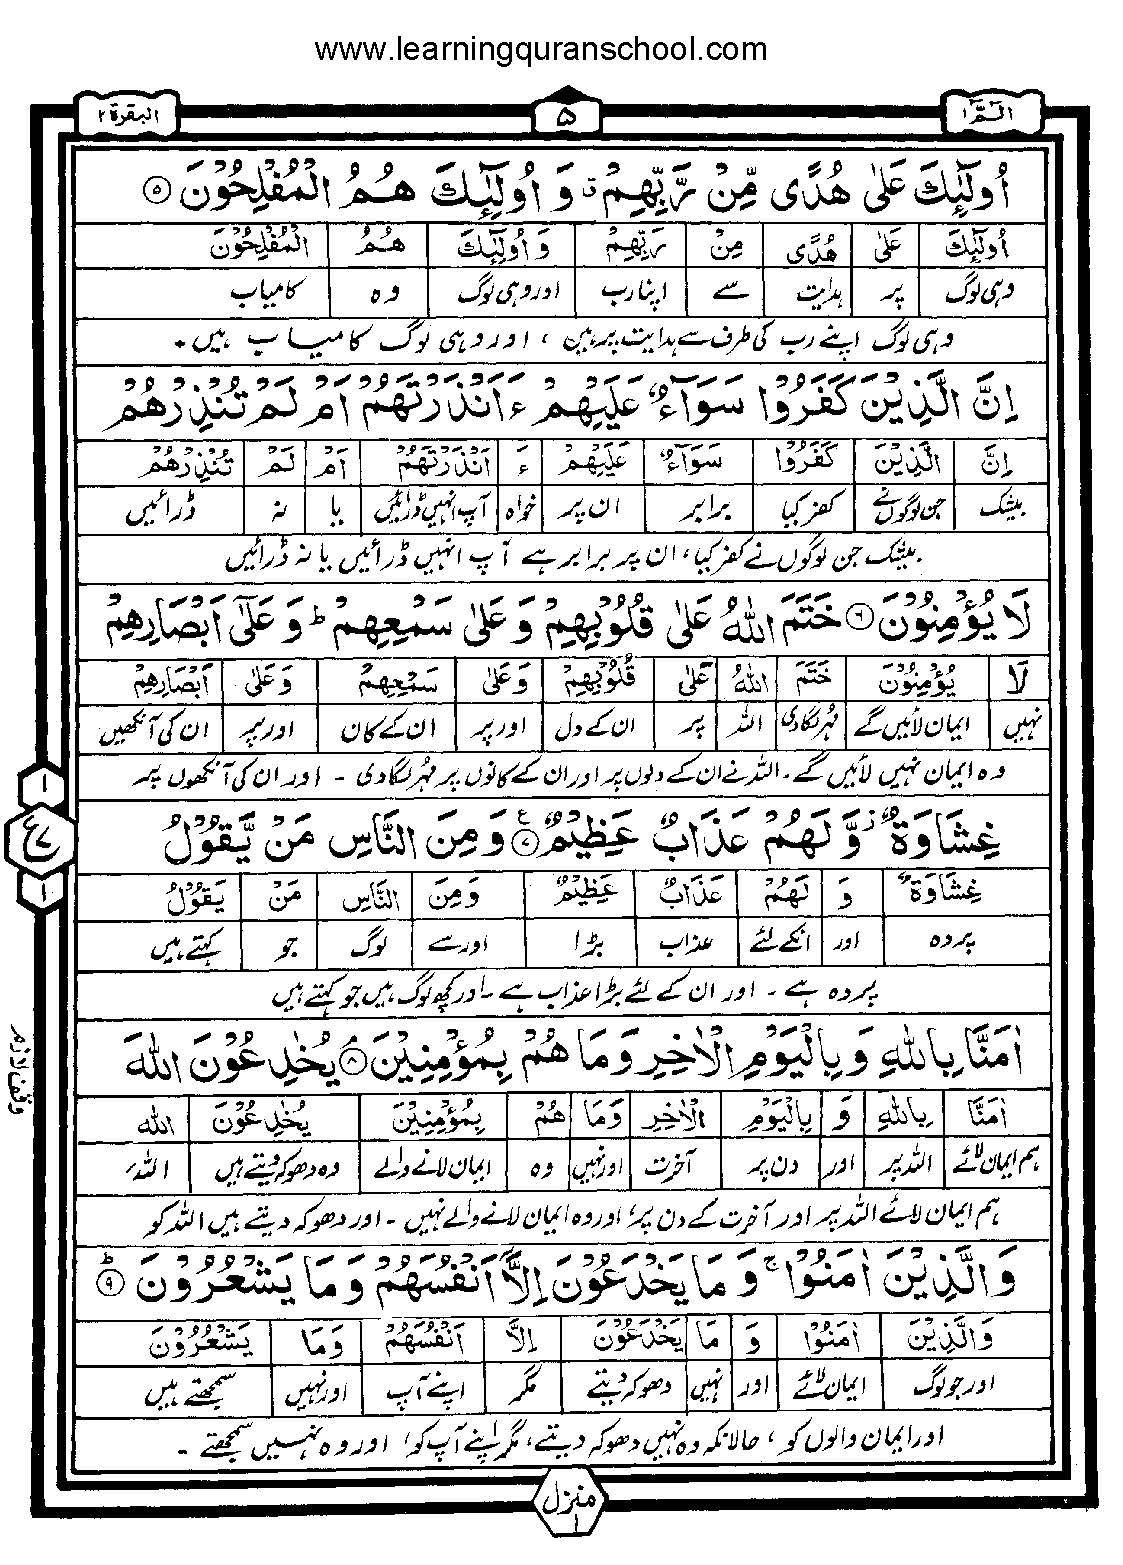 www.learningquranschool.com
الٓمّٓ ١
۵
البقرة ٢
اُولٰٓئِكَ عَلٰى هُدًى مِّنْ رَّبِّهِمْ ۗ وَ اُولٰٓئِكَ هُمُ الْمُفْلِحُوْنَ ۵
اُولٰٓئِكَ عَلٰى هُدًى مِنْ رَبِّهِمْ وَ اُولٰٓئِكَ هُمُ الْمُفْلِحُوْنَ
وہی لوگ پر ہدایت سے اپنا رب اور وہی لوگ وہ کامیاب
وہی لوگ اپنے رب کی طرف سے ہدایت پر ہیں ، اور وہی لوگ کامیاب ہیں ۔
اِنَّ الَّذِيْنَ كَفَرُوْا سَوَآءٌ عَلَيْهِمْ ءَ اَنْذَرْتَهُمْ اَمْ لَمْ تُنْذِرْهُمْ
اِنَّ الَّذِيْنَ كَفَرُوْا سَوَآءٌ عَلَيْهِمْ ءَ اَنْذَرْتَهُمْ اَمْ لَمْ تُنْذِرْهُمْ
بیشک جن لوگوں نے کفر کیا برابر ان پر خواہ آپ انہیں ڈرائیں یا نہ ڈرائیں
بیشک جن لوگوں نے کفر کیا ، ان پر برابر ہے آپ انہیں ڈرائیں یا نہ ڈرائیں
لَا يُؤْمِنُوْنَ ۶ خَتَمَ اللّٰهُ عَلٰى قُلُوْبِهِمْ وَ عَلٰى سَمْعِهِمْ ؕ وَ عَلٰٓى اَبْصَارِهِمْ
لَا يُؤْمِنُوْنَ خَتَمَ اللّٰهُ عَلٰى قُلُوْبِهِمْ وَعَلٰى سَمْعِهِمْ وَعَلٰى اَبْصَارِهِمْ
نہیں ایمان لائیں گے مہر لگادی اللہ پر ان کے دل اور پر ان کے کان اور پر ان کی آنکھیں
وہ ایمان نہیں لائیں گے ۔ اللہ نے ان کے دلوں پر اور ان کے کانوں پر مہر لگا دی - اور ان کی آنکھوں پر
غِشَاوَةٌ ز وَّ لَهُمْ عَذَابٌ عَظِيْمٌ ۷ ع وَ مِنَ النَّاسِ مَنْ يَّقُوْلُ
غِشَاوَةٌ وَ لَهُمْ عَذَابٌ عَظِيْمٌ وَ مِنَ النَّاسِ مَنْ يَقُوْلُ
پردہ اور انکے لئے عذاب بڑا اور سے لوگ جو کہتے ہیں
پردہ ہے - اور ان کے لئے بڑا عذاب ہے - اور کچھ لوگ ہیں جو کہتے ہیں
اٰمَنَّا بِاللّٰهِ وَ بِالْيَوْمِ الْاٰخِرِ وَ مَا هُمْ بِمُؤْمِنِيْنَ ۸ يُخٰدِعُوْنَ اللّٰهَ
اٰمَنَّا بِاللّٰهِ وَ بِالْيَوْمِ الْاٰخِرِ وَمَا هُمْ بِمُؤْمِنِيْنَ يُخٰدِعُوْنَ اللّٰهَ
ہم ایمان لائے اللہ پر اور دن پر آخرت اور نہیں وہ ایمان لانے والے وہ دھوکہ دیتے ہیں اللہ
ہم ایمان لائے اللہ پر اور آخرت کے دن پر ، اور وہ ایمان لانے والے نہیں - اور دھوکہ دیتے ہیں اللہ کو
وَ الَّذِيْنَ اٰمَنُوْا ۚ وَ مَا يَخْدَعُوْنَ اِلَّآ اَنْفُسَهُمْ وَ مَا يَشْعُرُوْنَ ؕ ۹
وَالَّذِيْنَ اٰمَنُوْا وَ مَا يَخْدَعُوْنَ اِلَّا اَنْفُسَهُمْ وَمَا يَشْعُرُوْنَ
اور جو لوگ ایمان لائے اور نہیں دھوکہ دیتے مگر اپنے آپ اور نہیں سمجھتے ہیں
اور ایمان والوں کو ، حالانکہ وہ نہیں دھوکہ دیتے ، مگر اپنے آپ کو ، اور وہ نہیں سمجھتے -
١
ع ٧
١
وقف لازم
منزل ١